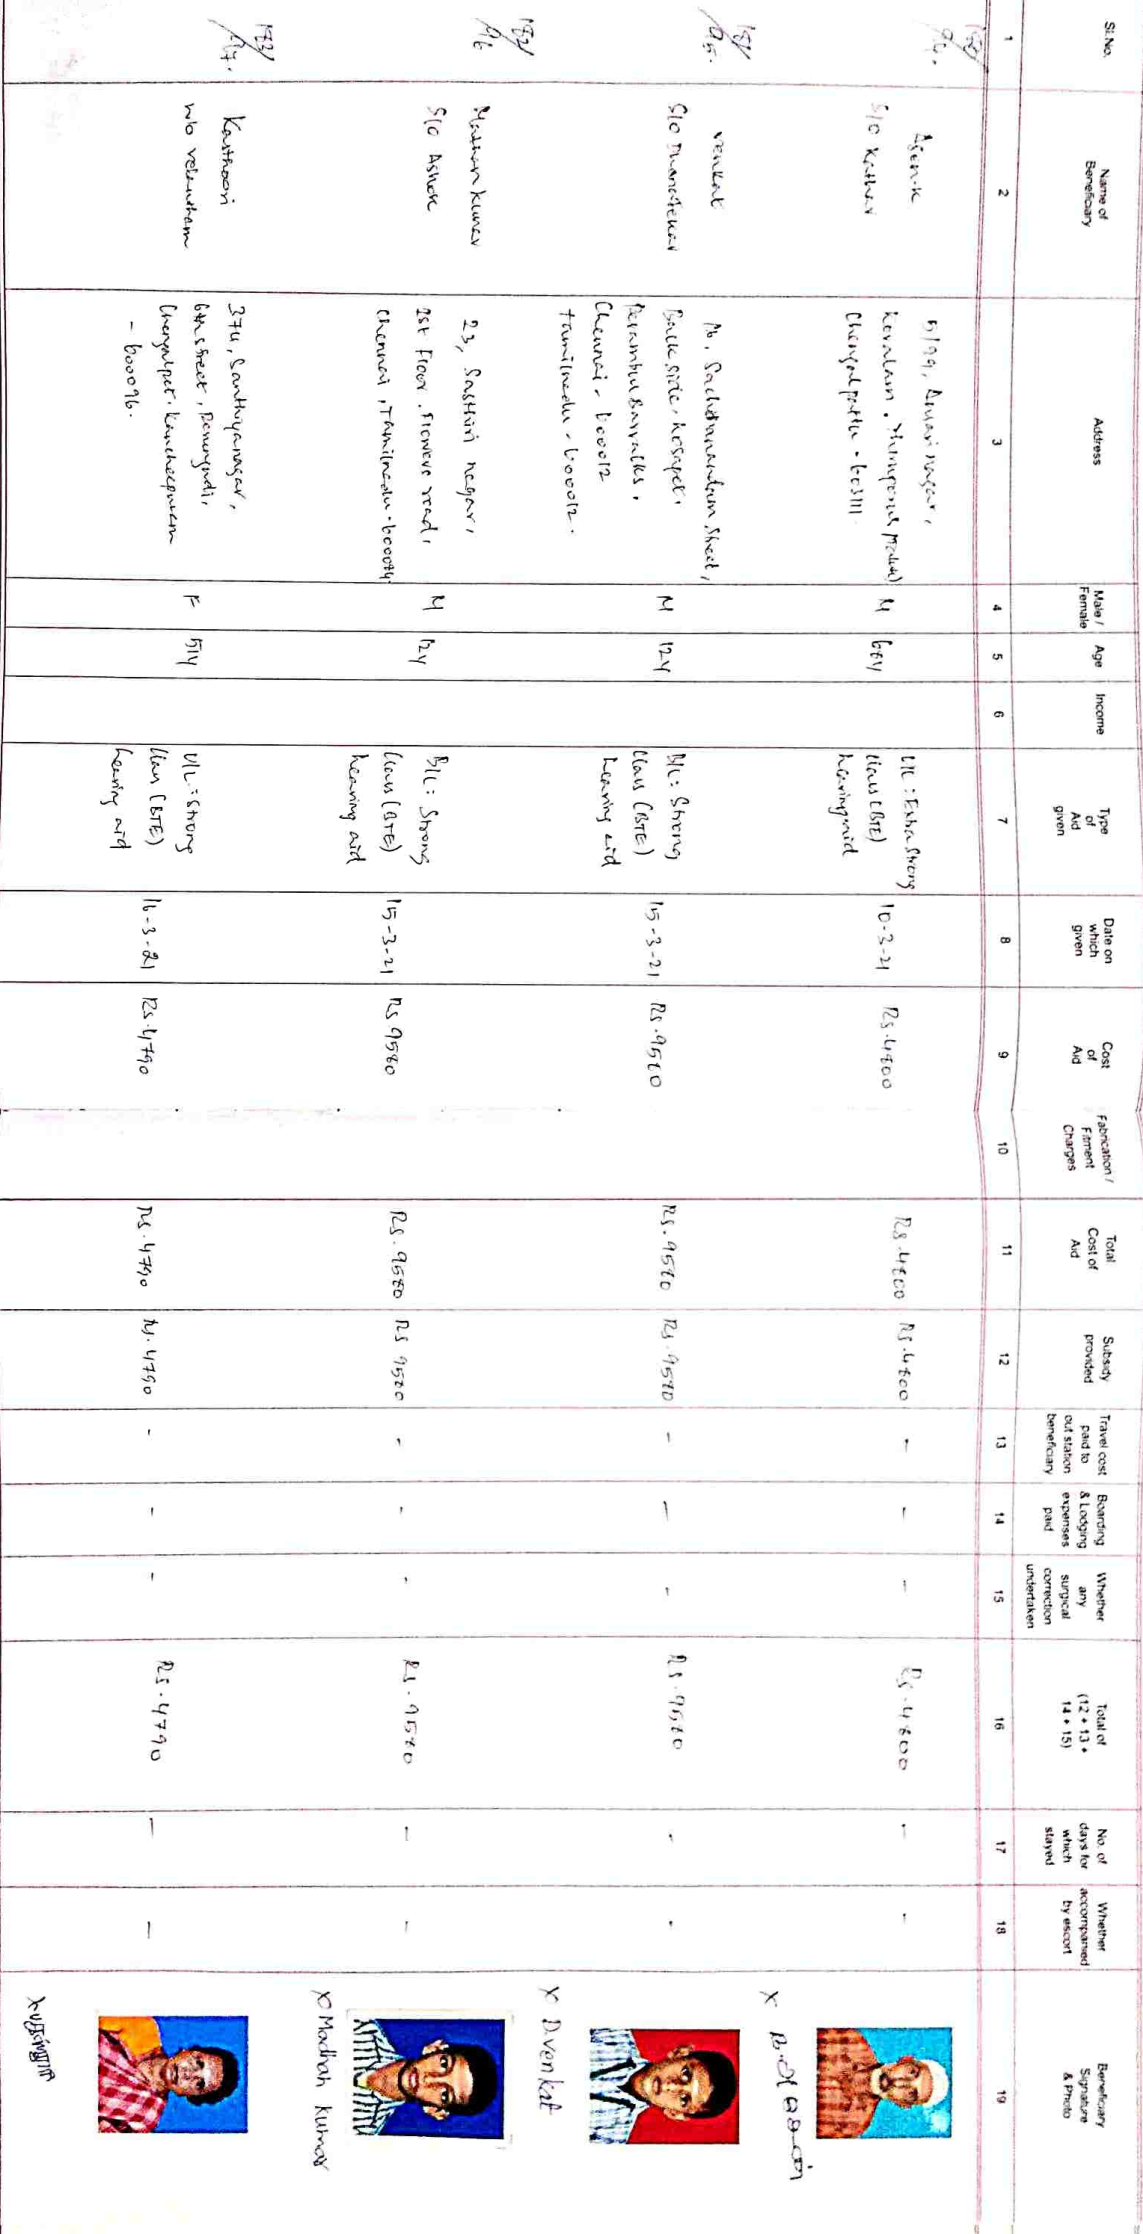 Sl.No.
Name of
Beneficiary
Address
Male /
Female
Age
Income
Type
of
Aid
given
Date on
which
given
Cost
of
Aid
Fabrication /
Fitment
Charges
Total
Cost of
Aid
Subsidy
provided
Travel cost
paid to
out station
beneficiary
Boarding
& Lodging
expenses
paid
Whether
any
surgical
correction
undertaken
Total of
(12 + 13 +
14 + 15)
No. of
days for
which
stayed
Whether
accompanied
by escort
Beneficiary
Signature
& Photo
1 2 3 4 5 6 7 8 9 10 11 12 13 14 15 16 17 18 19
180/
94.
S/O Kathar
5/99, nagar,
Kovalam,
Chengalpattu - 603111.
M
U/L: Extra Strong
Class (BTE)
hearing aid
10-3-21
Rs.4800
Rs.4800
Rs.4800
-
-
-
Rs.4800
-
-
x
181/
95.
Venkat
S/O
Street,
Back side,
Perambur Barracks,
Chennai - 600012
Tamilnadu - 600012.
M
12Y
B/L: Strong
Class (BTE)
hearing aid
15-3-21
Rs.9580
Rs.9580
Rs.9580
-
-
-
Rs.9580
-
-
x D.venkat
182/
96
S/O Ashok
23, Sasthiri nagar,
1st Floor, road,
Chennai, Tamilnadu-600094.
M
12Y
B/L: Strong
Class (BTE)
hearing aid
15-3-21
Rs 9580
Rs.9580
Rs 9580
-
-
-
Rs.9580
-
-
x Madhan Kumar
183/
97.
Kasthoori
W/O
374, Santhiyanagar,
6th Street, Perungudi,
Chengalpet, Kancheepuram
- 600096.
F
51Y
U/L: Strong
Class (BTE)
hearing aid
16-3-21
Rs.4790
Rs.4790
Rs.4790
-
-
-
Rs.4790
-
-
x